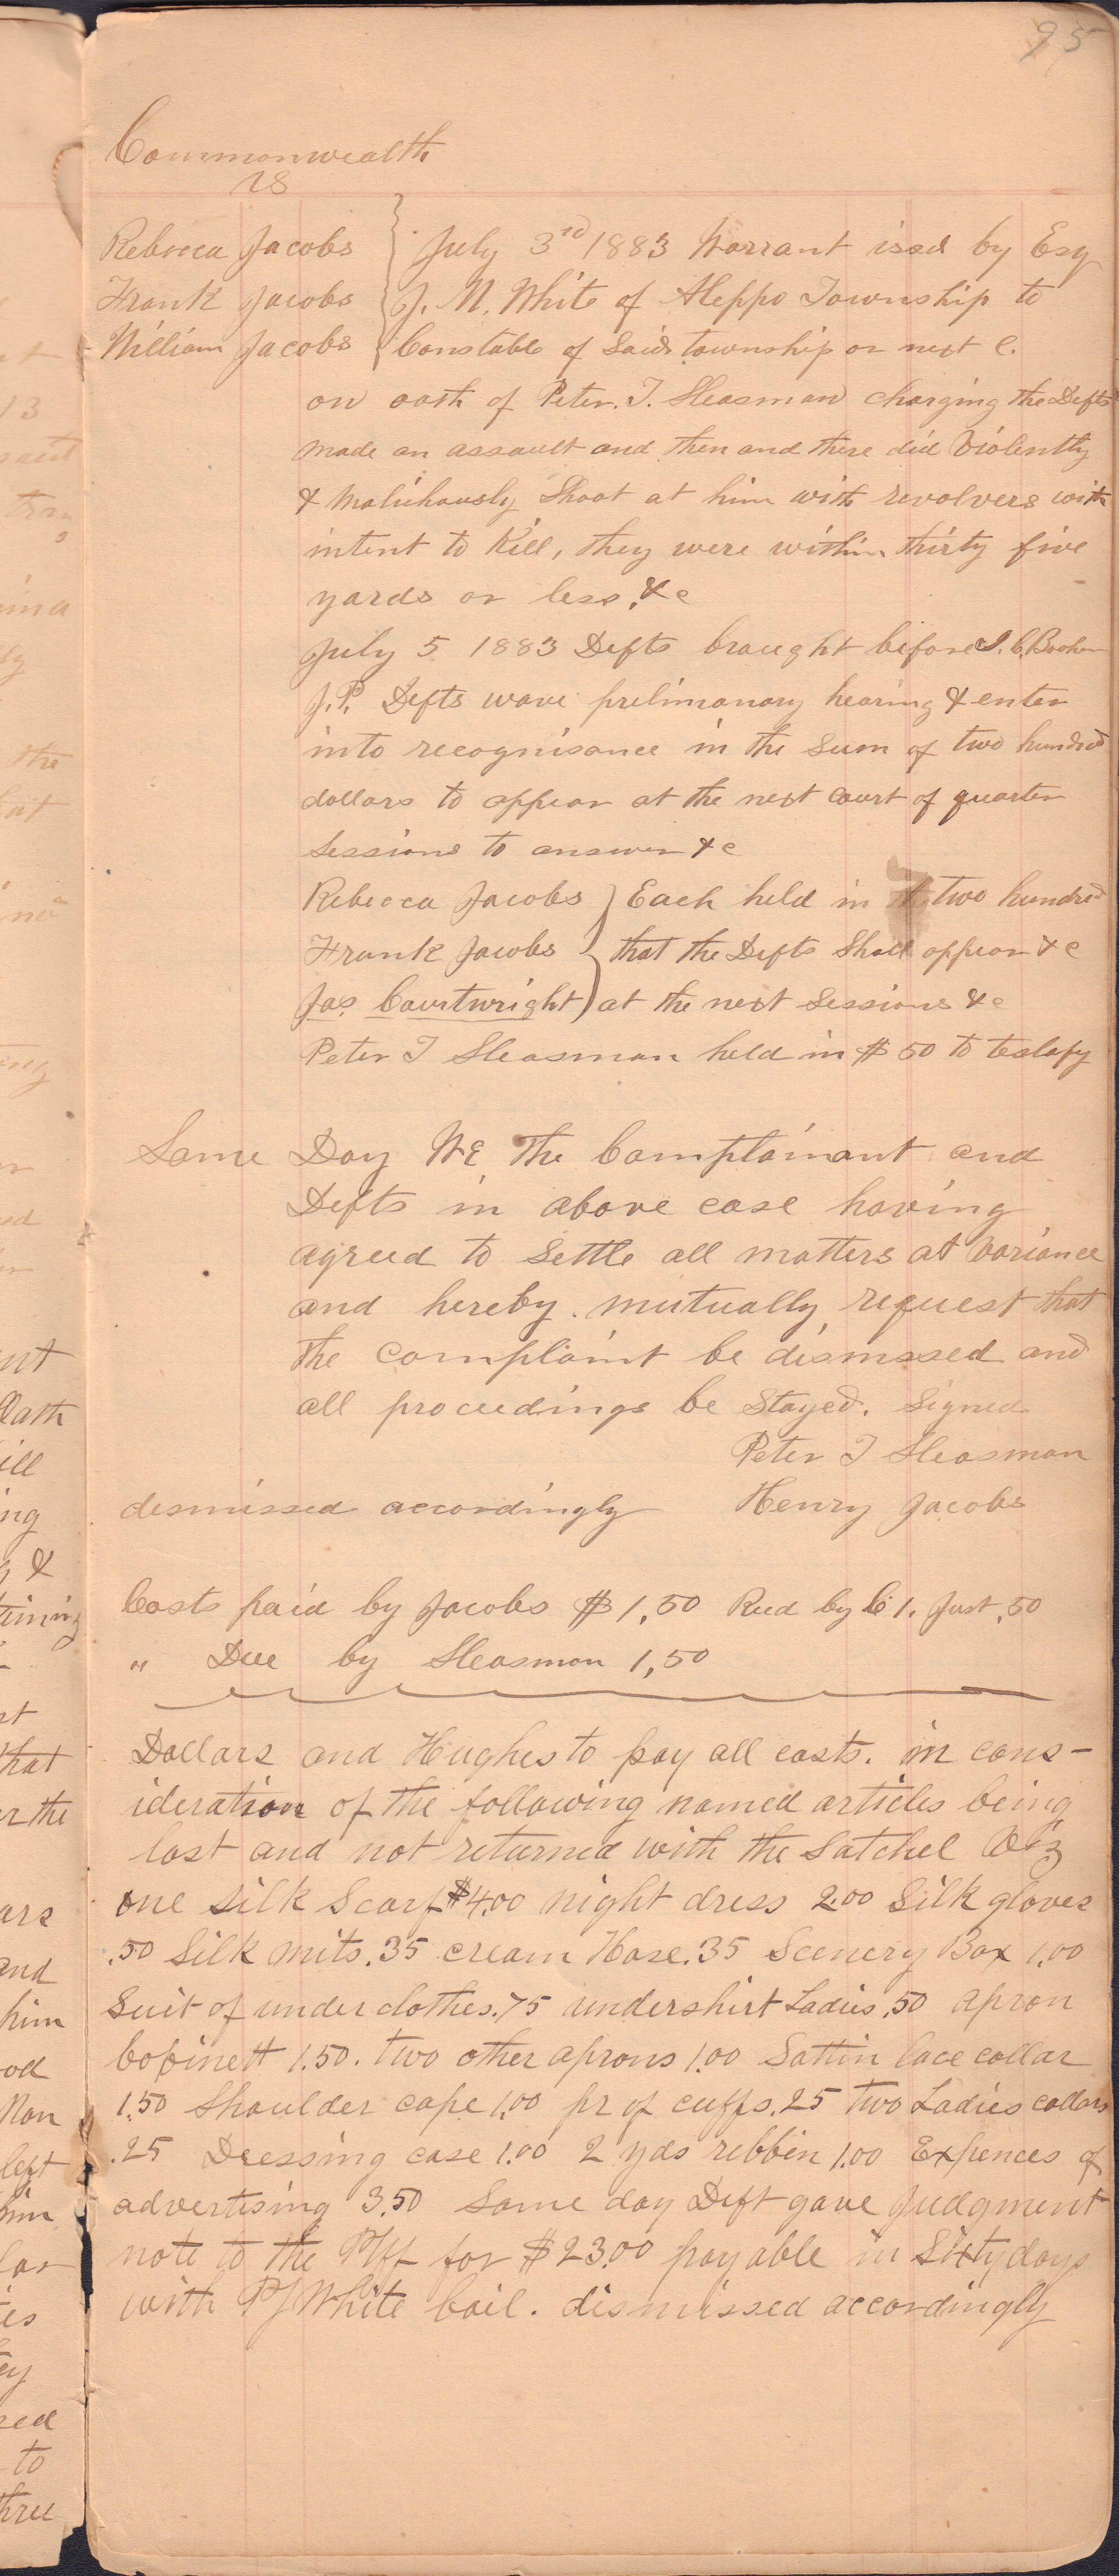 95
Commonwealth
vs
Rebecca Jacobs } July 3rd 1883 Warrant issd by Esq
Frank Jacobs } J. M. White of Aleppo Township to
William Jacobs } Constable of Said township or next C.
on oath of Peter. T. Sleasman charging the Defts
made an assault and then and there did Violently
& Malichously Shoot at him with revolvers with
intent to Kill, they were within thirty five
yards or less, &c
July 5 1883 Defts braught before J. C. Booher
J. P. Defts wave prelimanary hearing & enter
into recognisance in the Sum of two hundred
dollars to appear at the next Court of quarter
Sessions to answer &c
Rebecca Jacobs } Each held in two hundred
Frank Jacobs } that the Defts Shall appear &c
Jas. Courtwright } at the next Sessions &c
Peter T Sleasman held in $50 to testafy
Same Day WE, The Complainant and
Defts in above case having
agreed to Settle all matters at Variance
and hereby mutually request that
the complaint be dismssed and
all proceedings be Stayed. Signed
Peter T Sleasman
desmissed accordingly Henry Jacobs
Costs paid by Jacobs $1,50 Recd by C 1. Just ,50
" Due by Sleasman 1,50
Dollars and Hughes to pay all costs. in cons-
ideration of the following named articles being
lost and not returned with the Satchel Viz
one silk Scarf $4.00 night dress 2.00 Silk gloves
.50 Silk mits .35 cream Hose .35 Scenery Box 1.00
Suit of under clothes .75 undershirt Ladies .50 apron
bobinett 1.50. two other aprons 1.00 Sattin lace collar
1.50 Shoulder cape 1.00 pr of cuffs .25 two Ladies collars
.25 Dressing case 1.00 2 yds ribbin 1.00 Expences of
advertising 3.50 Same day Deft gave Judgment
note to the Plff for $23.00 payable in Sixty days
with P J White bail. dismissed accordingly